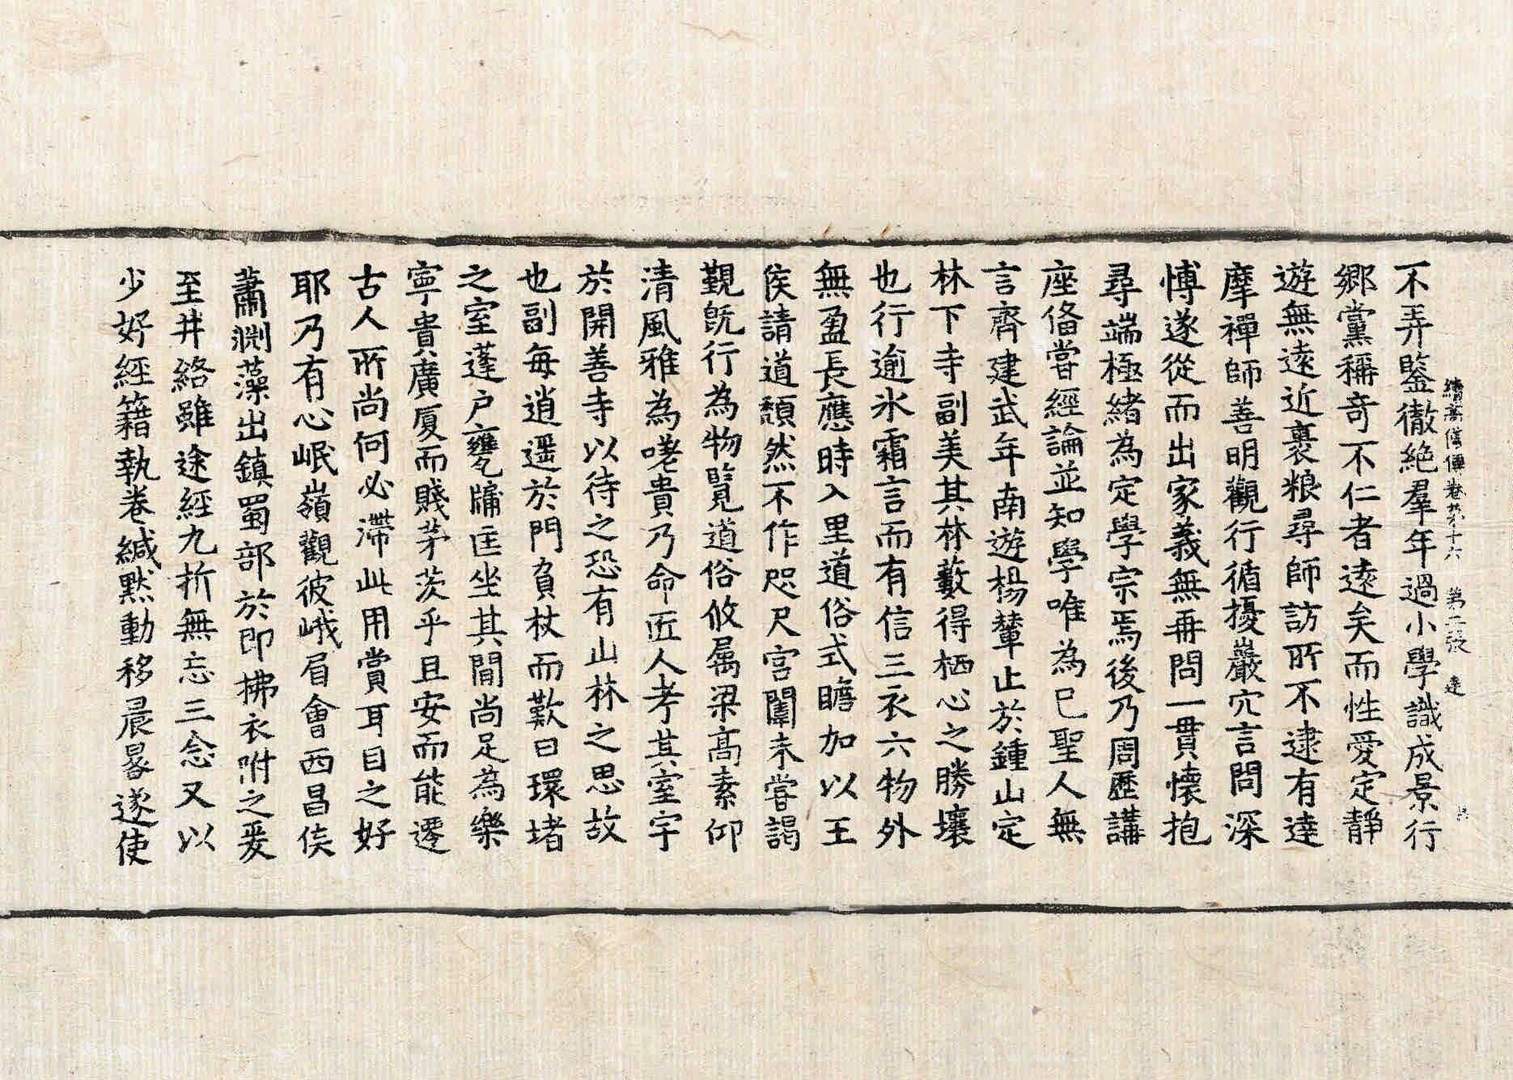 續髙僧傳卷第十六 第二張 達
不弄鑒徹絶羣年過小學識成景行
鄉黨稱奇不仁者遠矣而性愛定靜
遊無遠近裹粮尋師訪所不逮有達
摩禪師善明觀行循擾巖穴言問深
博遂從而出家義無再問一貫懷抱
尋端極緒為定學宗焉後乃周歷講
座俻甞經論並知學唯為已聖人無
言齊建武年南遊楊輦止於鍾山定
林下寺副美其林藪得栖心之勝壤
也行逾氷霜言而有信三衣六物外
無盈長應時入里道俗式瞻加以王
侯請道頽然不作咫尺宫闈未甞謁
覲旣行為物覽道俗攸屬梁高素仰
清風雅為嗟貴乃命匠人考其室宇
於開善寺以待之恐有山林之思故
也副每逍遥於門負杖而歎曰環堵
之室蓬户甕牖匡坐其閒尚足為樂
寧貴廣厦而賤茅茨乎且安而能遷
古人所尚何必滯此用賞耳目之好
耶乃有心岷嶺觀彼峨眉會西昌侯
蕭淵藻出鎮蜀部於即拂衣附之爰
至井絡雖途經九折無忘三念又以
少好經籍執卷緘默動移晨晷遂使